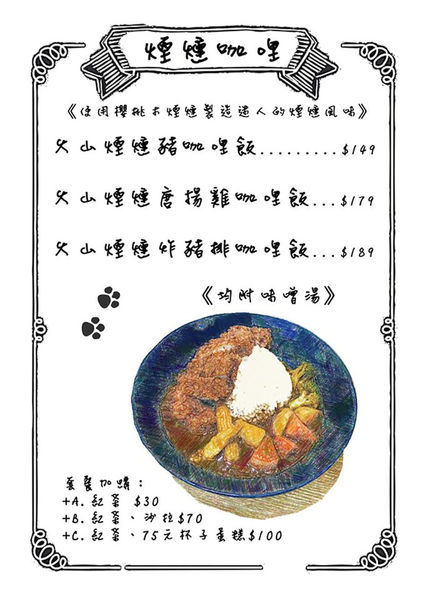 煙燻咖哩
《使用櫻桃木煙燻製造迷人的煙燻風味》
火山煙燻豬咖哩飯.........$149
火山煙燻唐揚雞咖哩飯...$179
火山煙燻炸豬排咖哩飯...$189
《均附味噌湯》
套餐加購：
+A.紅茶 $30
+B.紅茶、沙拉$70
+C.紅茶、75元杯子蛋糕$100